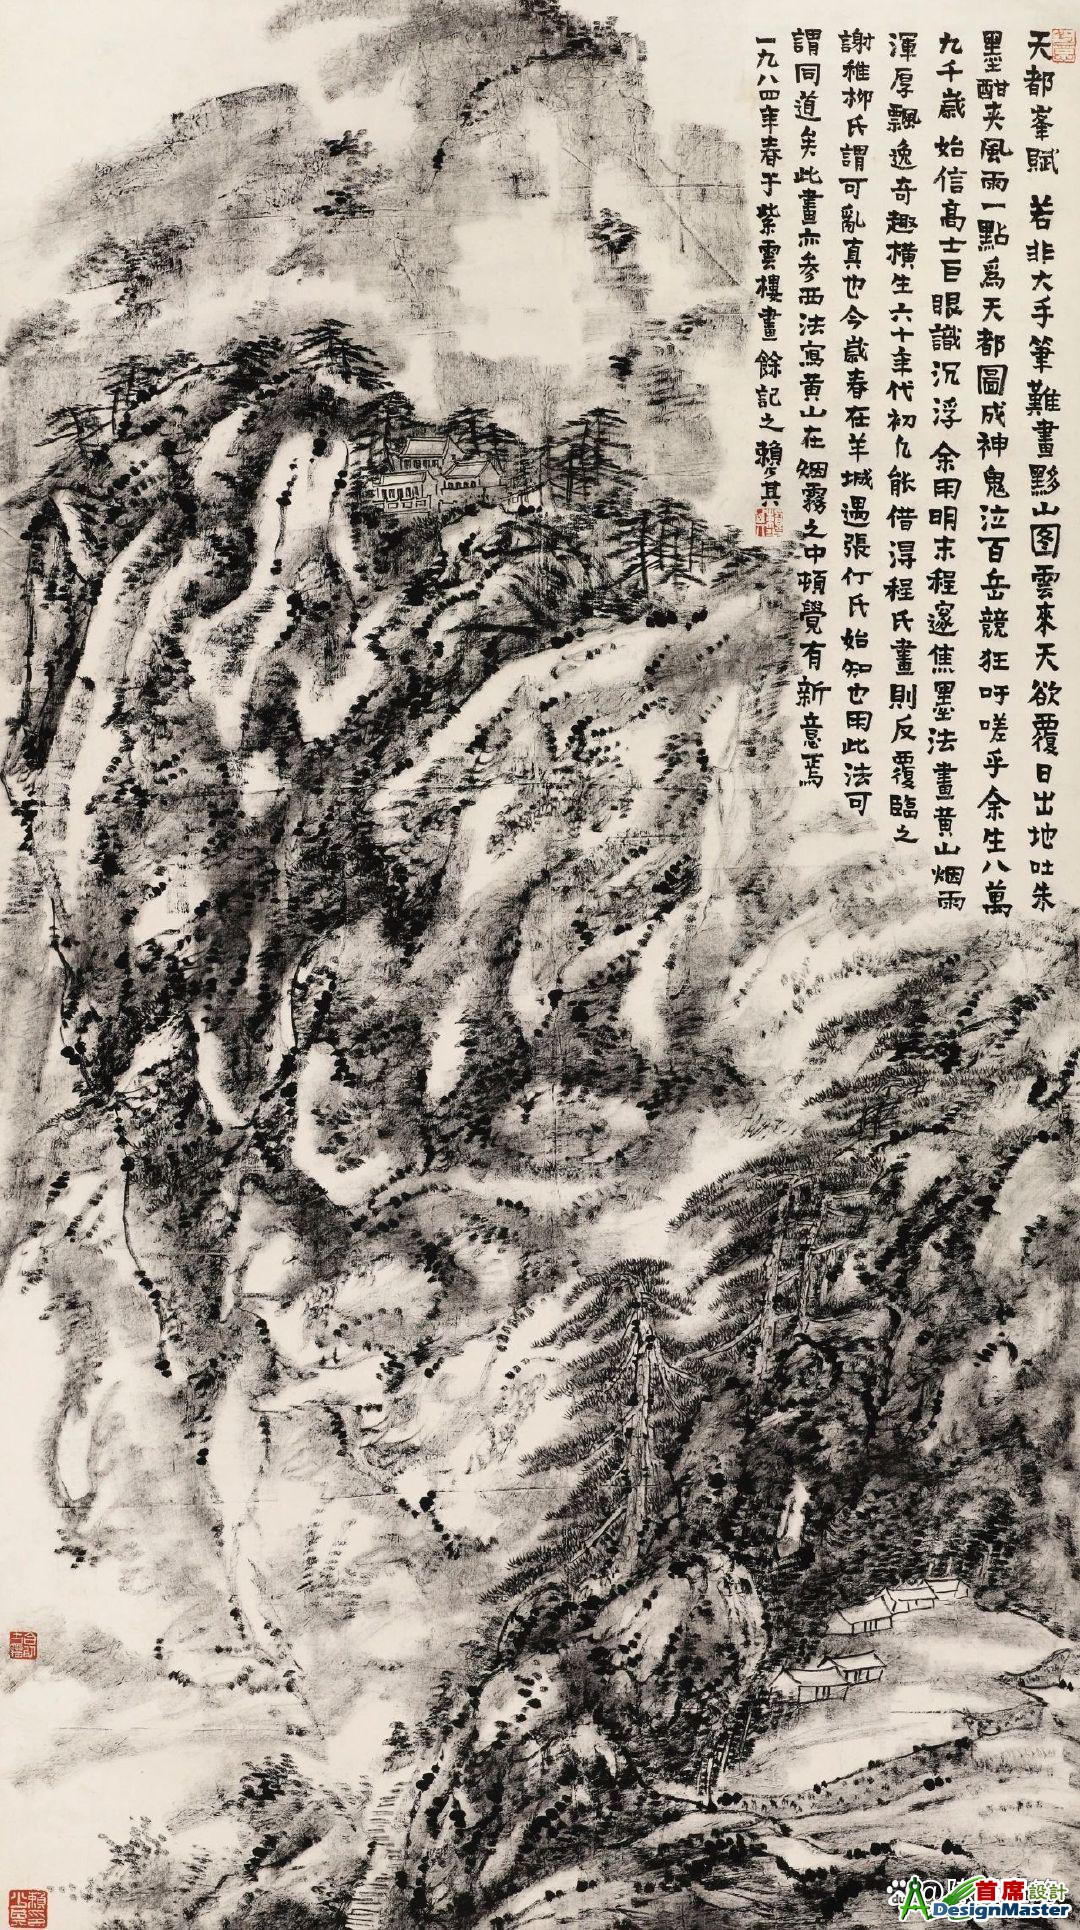 天都峯賦 若非大手筆難畫黟山图雲來天欲覆日出地吐朱
墨酣夾風雨一點爲天都圖成神鬼泣百岳競狂吁嗟乎余生八萬
九千歲始信高士巨眼識沉浮 余用明末程邃焦墨法畫黄山烟雨
渾厚飄逸奇趣橫生六十年代初仇能借淂程氏畫則反覆臨之
謝稚柳氏謂可亂真也今歲春在羊城遇張仃氏始知也用此法可
謂同道矣此畫亦參西法寫黄山在烟霧之中頓覺有新意焉
一九八四年春于紫雲樓畫餘記之賴少其
首席設計
DesignMaster